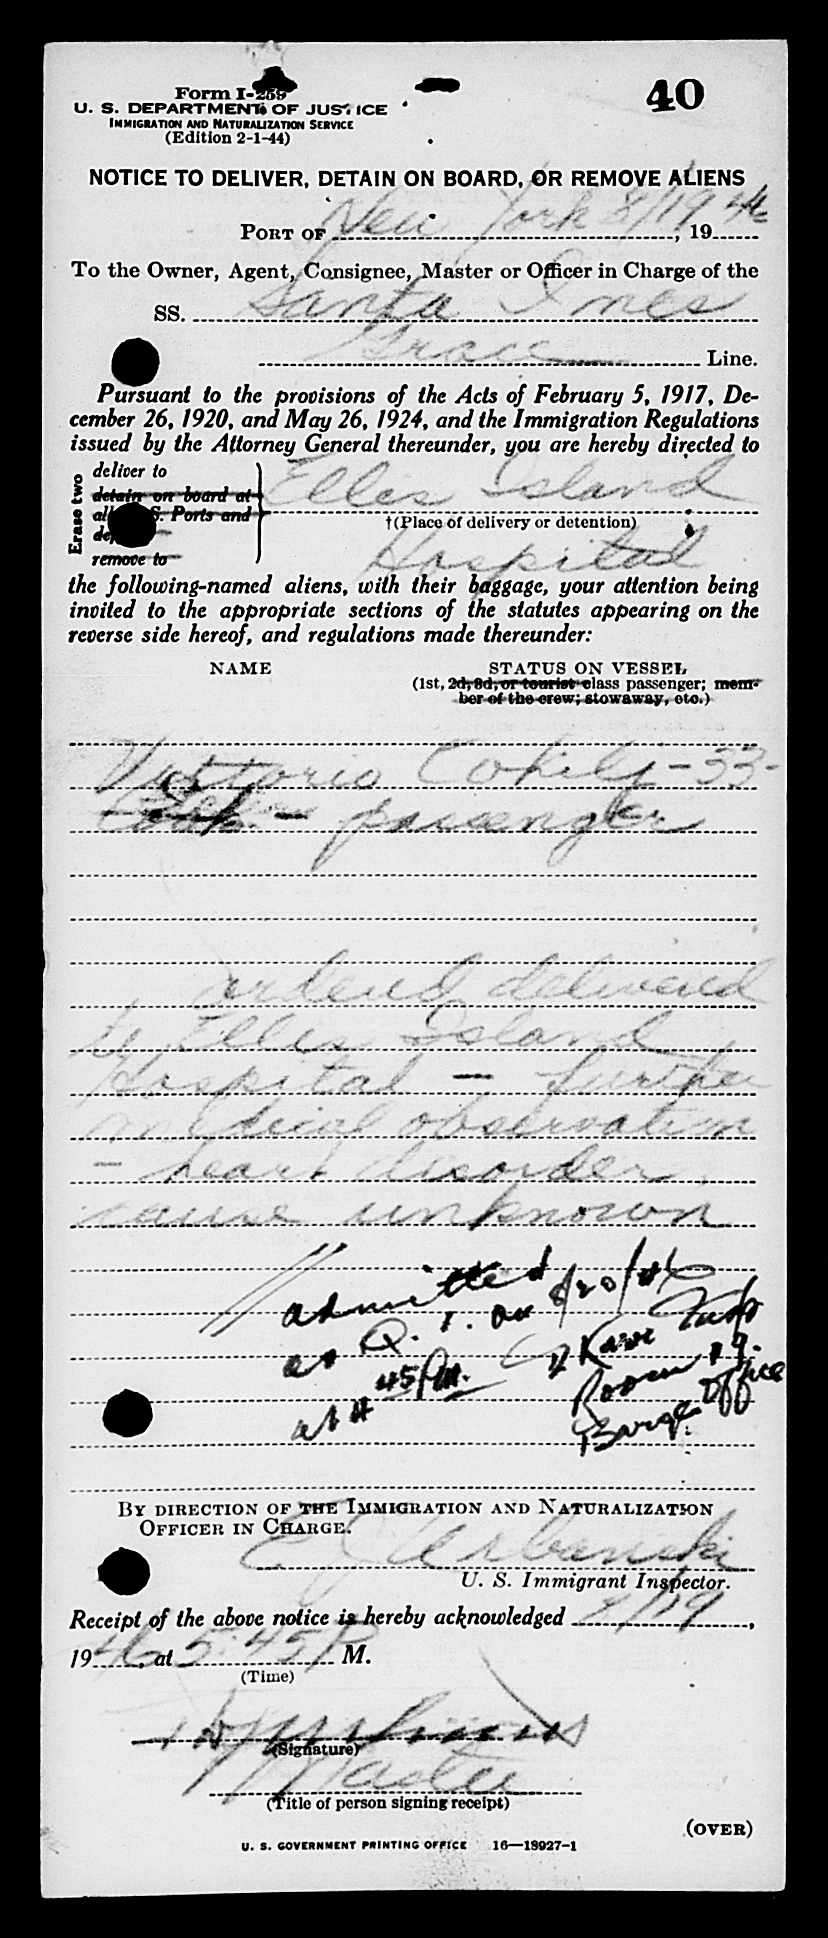 Form I-259
40
U. S. DEPARTMENT OF JUSTICE
IMMIGRATION AND NATURALIZATION SERVICE
(Edition 2-1-44)
NOTICE TO DELIVER, DETAIN ON BOARD, OR REMOVE ALIENS
PORT OF New York 8/19, 1946
To the Owner, Agent, Consignee, Master or Officer in Charge of the
SS. Santa Ines
Grace Line.
Pursuant to the provisions of the Acts of February 5, 1917, De-
cember 26, 1920, and May 26, 1924, and the Immigration Regulations
issued by the Attorney General thereunder, you are hereby directed to
Erase two
deliver to
detain on board at
all U. S. Ports and
remove to
Ellis Island
†(Place of delivery or detention)
Hospital
the following-named aliens, with their baggage, your attention being
invited to the appropriate sections of the statutes appearing on the
reverse side hereof, and regulations made thereunder:
NAME STATUS ON VESSEL
(1st, 2d, 3d, or tourist class passenger; mem-
ber of the crew; stowaway, etc.)
Vittorio - 53 -
- passenger
delivered
to Ellis Island
Hospital - further
medical observation
- heart disorder,
cause unknown
admitted
as Q. I. on 8/20/46
at 4 45 PM.
Room 19.
Barge Office
BY DIRECTION OF THE IMMIGRATION AND NATURALIZATION
OFFICER IN CHARGE.
E J Urbanski
U. S. Immigrant Inspector.
Receipt of the above notice is hereby acknowledged 8/19,
1946, at 5:45 P M.
(Time)
(Signature)
Master
(Title of person signing receipt)
(OVER)
U. S. GOVERNMENT PRINTING OFFICE 16—18927-1